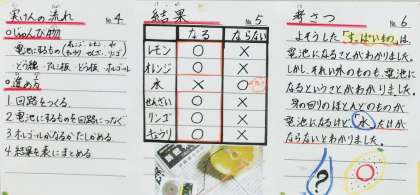 実けんの流れ No.4
○じゅんび物
電池にするもの
どう線・アルミ板・どう板・オルゴール
○進め方
1 回路をつくる。
2 電池にするものを回路につなぐ
3 オルゴールがなるかたしかめる
4 結果を表にまとめる
結果 No.5
なる ならない
レモン ○ ×
オレンジ ○ ×
水 × ○
せんざい ○ ×
リンゴ ○ ×
キュウリ ○ ×
考さつ No.6
よそうした「すっぱいもの」は、
電池になることがわかりました。
しかし、それい外のものも、電池に
なるということがわかりました。
身の回りのほとんどのものが
電池になるけど、「水」だけが
ならないとわかりました。
？